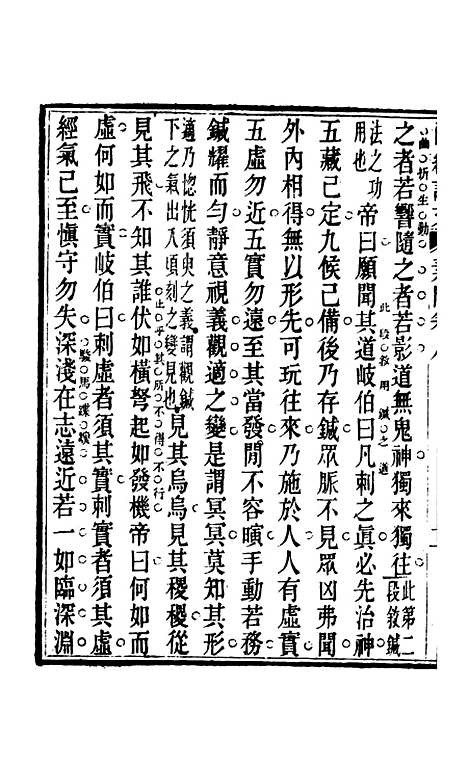 之者若響隨之者若影道無鬼神獨來獨往此第二段敘鍼
法之功用也帝曰願聞其道岐伯曰凡刺之眞必先治神
五藏已定九候已備後乃存鍼眾脈不見眾凶弗聞
外內相得無以形先可玩往來乃施於人人有虛實
五虛勿近五實勿遠至其當發閒不容瞚手動若務
鍼耀而勻靜意視義觀適之變是謂冥冥莫知其形
適乃惚恍須臾之義謂觀鍼下之氣出入頃刻之變見也見其烏烏見其稷稷從
見其飛不知其誰伏如橫弩起如發機帝曰何如而
虛何如而實岐伯曰刺虛者須其實刺實者須其虛
經氣已至愼守勿失深淺在志遠近若一如臨深淵
幽析生動
此段敘用鍼之道
止乎其所不得不行
駿馬驀坡